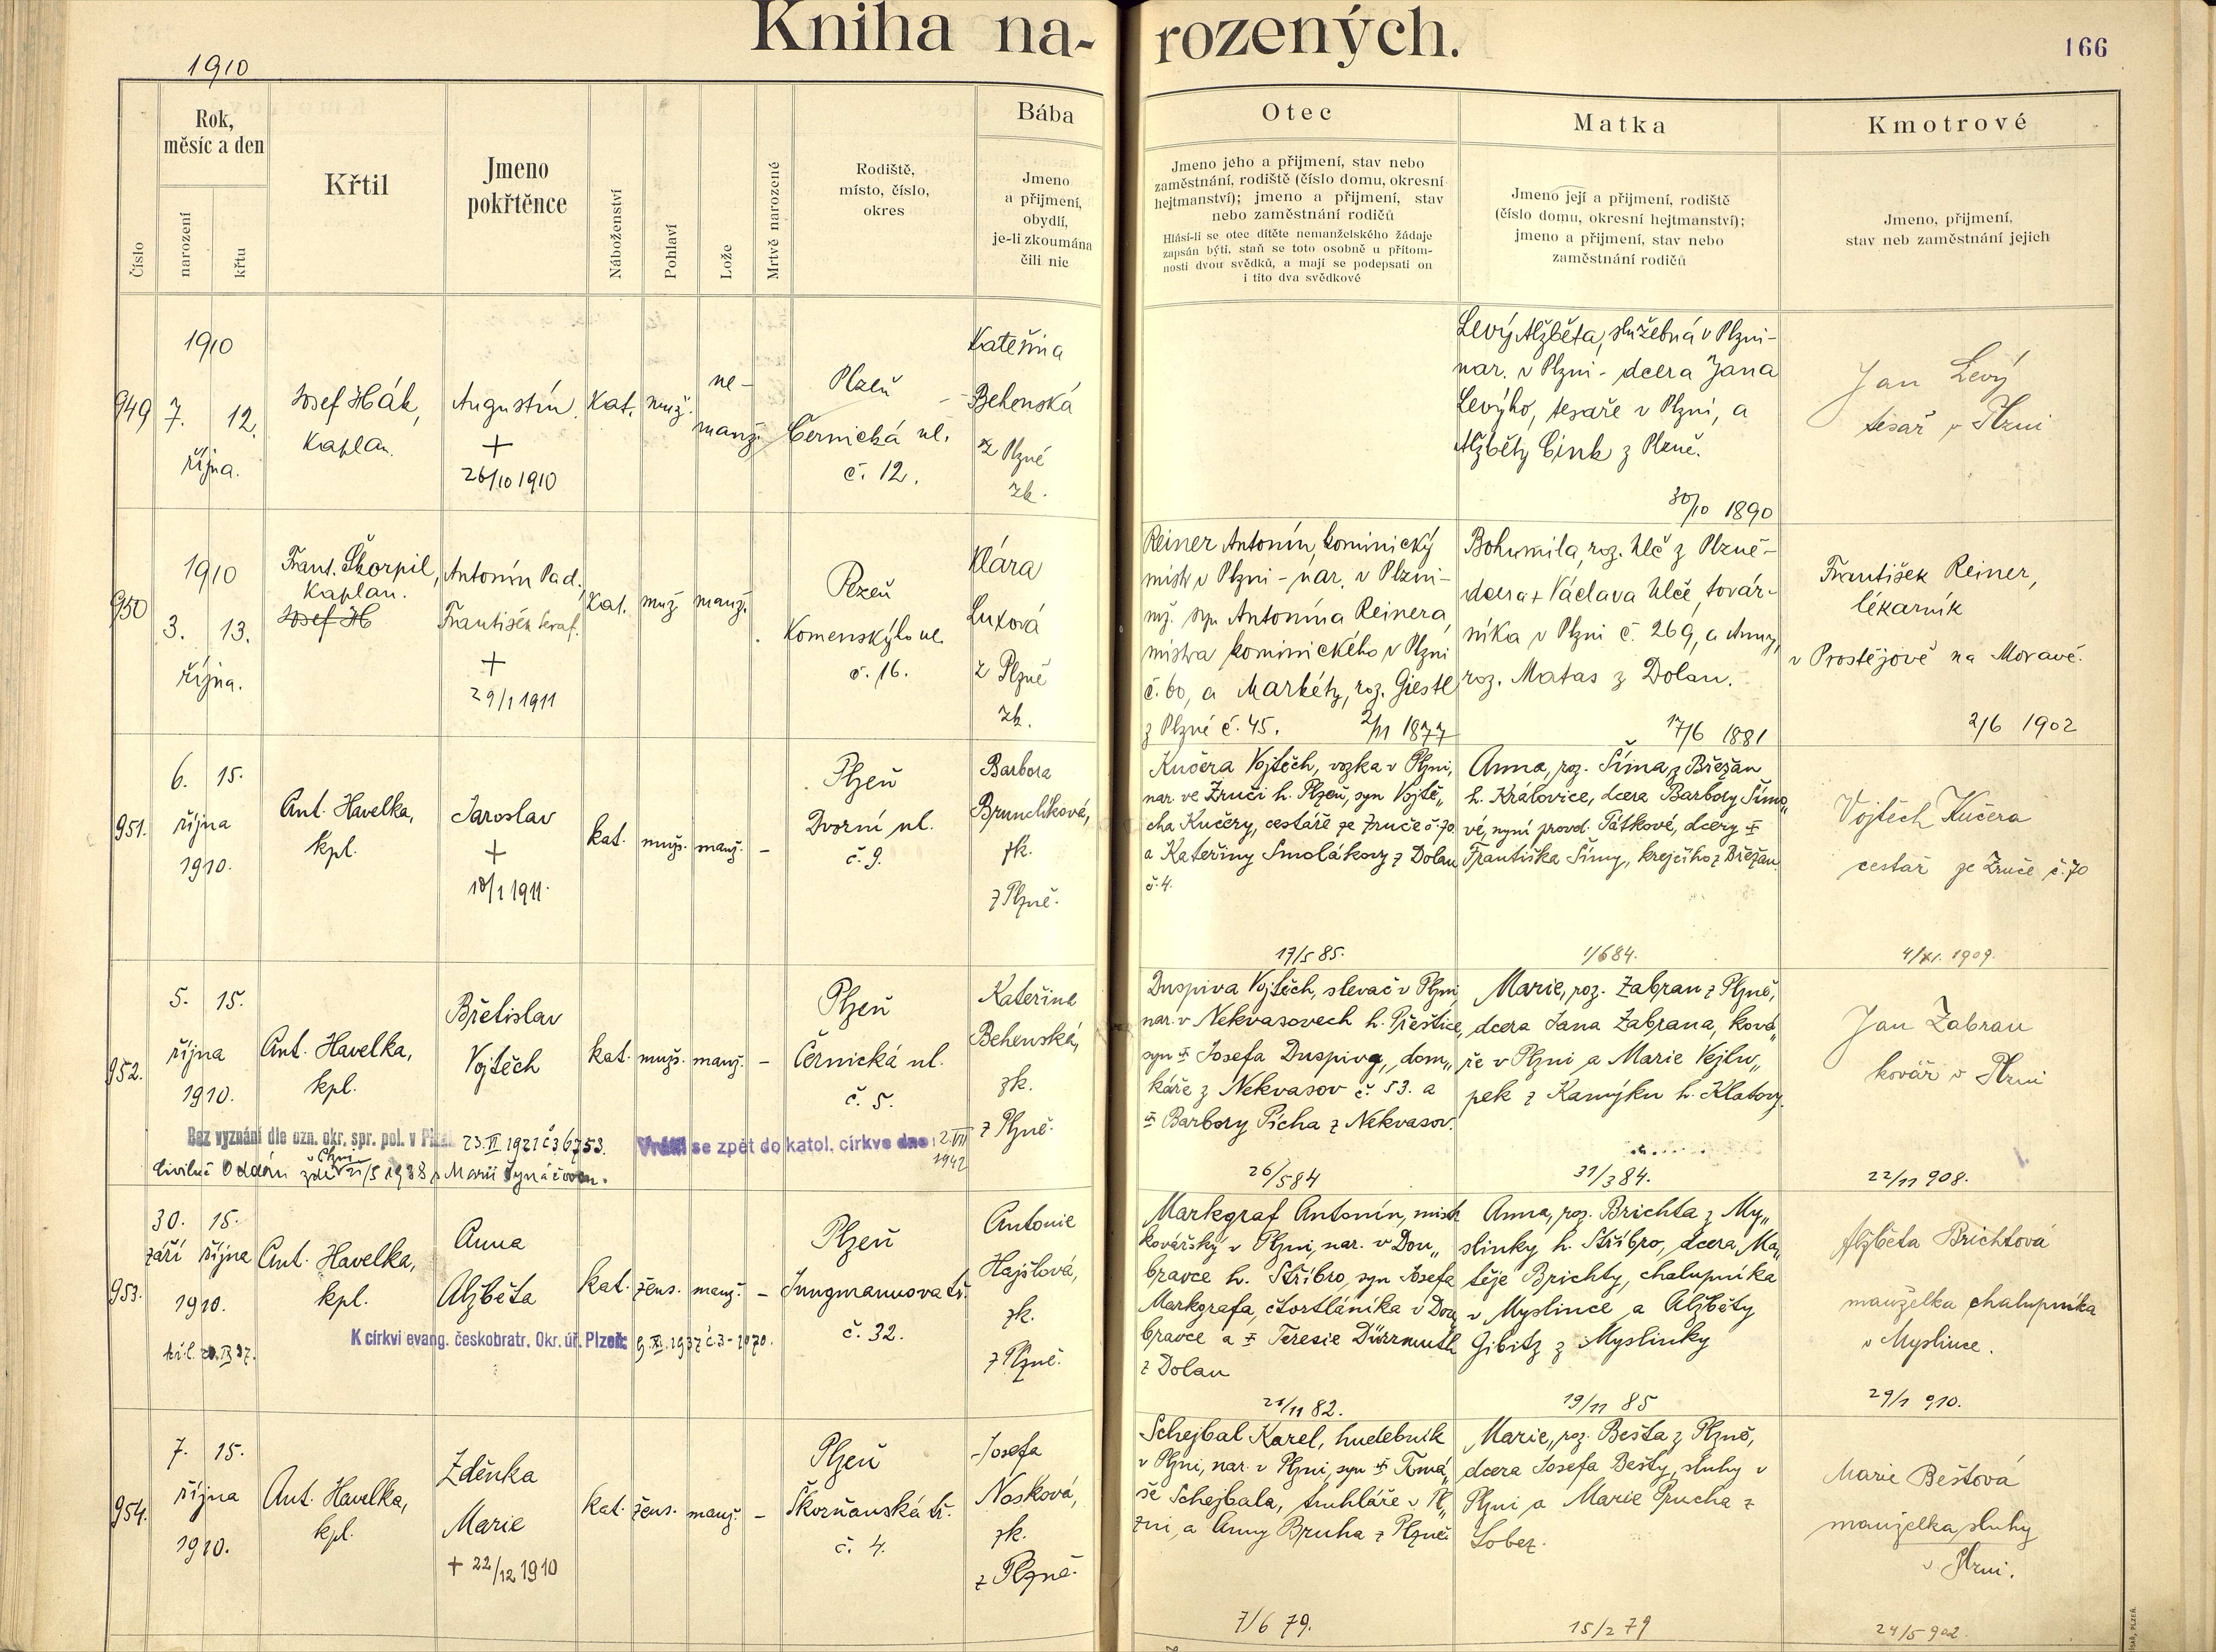 Kniha na-
rozených.
166
1910
Číslo
Rok,
měsíc a den
narození
křtu
Křtil
Jmeno
pokřtěnce
Náboženství
Pohlaví
Lože
Mrtvě narozené
Rodiště,
místo, číslo,
okres
Bába
Jmeno
a přijmení,
obydlí,
je-li zkoumána
čili nic
Otec
Jmeno jeho a přijmení, stav nebo
zaměstnání, rodiště (číslo domu, okresní
hejtmanství); jmeno a přijmení, stav
nebo zaměstnání rodičů
Hlásí-li se otec dítěte nemanželského žádaje
zapsán býti, staň se toto osobně u přítom-
nosti dvou svědků, a mají se podepsati on
i tito dva svědkové
Matka
Jmeno její a přijmení, rodiště
(číslo domu, okresní hejtmanství);
jmeno a přijmení, stav nebo
zaměstnání rodičů
Kmotrové
Jmeno, přijmení,
stav neb zaměstnání jejich
949
1910
7. 12.
října.
Josef Hák,
kaplan.
Augustín
+
26/10 1910
Kat.
muž.
ne-
manž.
Plzeň
Černická ul.
č. 12.
Kateřina
Behenská
z Plzně
zk.
Levý Alžběta, služebná v Plzni-
nar. v Plzni - dcera Jana
Levýho, tesaře v Plzni, a
Alžběty Cink z Plzně.
30/10 1890
Jan Levý
tesař v Plzni
950
1910
3. 13.
října.
Frant. Škorpil,
kaplan.
Josef H
Antonín Pad.,
František Seraf.
+
29/1 1911
Kat.
muž
manž.
Plzeň
Komenskýho ul.
č. 16.
Klára
Luxová
z Plzně
zk.
Reiner Antonín, kominický
mistr v Plzni - nar. v Plzni-
mž. syn Antonína Reinera,
mistra kominického v Plzni
č. 60, a Markéty, roz. Giestl
z Plzně č. 45. 2/11 1877
Bohumila, roz. Ulč z Plzně-
dcera + Václava Ulče, továr-
níka v Plzni č. 269, a Anny,
roz. Matas z Dolan.
17/6 1881
František Reiner,
lékarník
v Prostějově na Moravě.
2/6 1902
951.
6. 15.
října
1910.
Ant. Havelka,
kpl.
Jaroslav
+
18/1 1911.
kat.
mužs.
manž.
-
Plzeň
Dvorní ul.
č. 9.
Barbora
Brunclíková,
zk.
z Plzně.
Kučera Vojtěch, vozka v Plzni,
nar. ve Zruči h. Plzeň, syn Vojtě„
cha Kučery, cestáře ze Zruče č. 70.
a Kateřiny Smolákovy z Dolan
č. 4.
17/5 85.
Anna, roz. Šíma, z Břežan
h. Královice, dcera Barbory Šímo„
vé, nyní provd. Pátkové, dcery +
Františka Šímy, krejčího z Břežan.
1/6 84.
Vojtěch Kučera
cestář ze Zruče č. 70
4/XI. 1909.
952.
5. 15.
října
1910.
Ant. Havelka,
kpl.
Břetislav
Vojtěch
kat.
mužs.
manž.
-
Plzeň
Černická ul.
č. 5.
Kateřina
Behenská,
zk.
z Plzně.
Bez vyznání dle ozn. okr. spr. pol. v Plzni 23. VI 1921 č 36753.
Vrátil se zpět do katol. církve dne 2. VII
1942
Civilně Oddán v Plzni
zde 21/5 1938 s Marií Synáčovou.
Duspiva Vojtěch, slevač v Plzni,
nar. v Nekvasovech h. Přeštice,
syn + Josefa Duspivy, dom„
káře z Nekvasov č. 53. a
+ Barbory Pícha z Nekvasov.
26/5 84
Marie, roz. Zabran z Plzně,
dcera Jana Zabrana, ková„
ře v Plzni a Marie Vejlu„
pek z Kamýku h. Klatovy.
31/3 84.
Jan Zabran
kovář v Plzni
22/11 908.
953.
30. 15.
září října
1910.
Ant. Havelka,
kpl.
Anna
Alžběta
kat.
žens.
manž.
-
Plzeň
Jungmannova tř.
č. 32.
Antonie
Hajšlová,
zk.
z Plzně.
K církvi evang. českobratr. Okr. úř. Plzeň: 9. XI. 1937 č. 3-1070.
Markgraf Antonín, mistr
kovářský v Plzni, nar. v Dou„
bravce h. Stříbro, syn Josefa
Markgrafa, čtvrtláníka v Dou„
bravce a + Teresie Dürrmuth
z Dolan
21/11 82.
Anna, roz. Brichta z My„
slinky h. Stříbro, dcera Ma„
těje Brichty, chalupníka
v Myslince a Alžběty
Gibitz z Myslinky
19/11 85
Alžběta Brichtová
manželka chalupníka
v Myslince.
29/1 910.
954.
7. 15.
října
1910.
Ant. Havelka,
kpl.
Zděnka
Marie
+ 22/12 1910
kat.
žens.
manž.
-
Plzeň
Škorňanská tř.
č. 4.
Josefa
Nosková,
zk.
z Plzně.
Schejbal Karel, hudebník
v Plzni, nar. v Plzni, syn + Tomá„
še Schejbala, truhláře v Pl„
zni, a Anny Bruha z Plzně.
7/6 79.
Marie, roz. Bešta z Plzně,
dcera Josefa Bešty, sluhy v
Plzni a Marie Prucha z
Lobez.
15/2 79
Marie Beštová
manželka sluhy
v Plzni.
24/5 902.